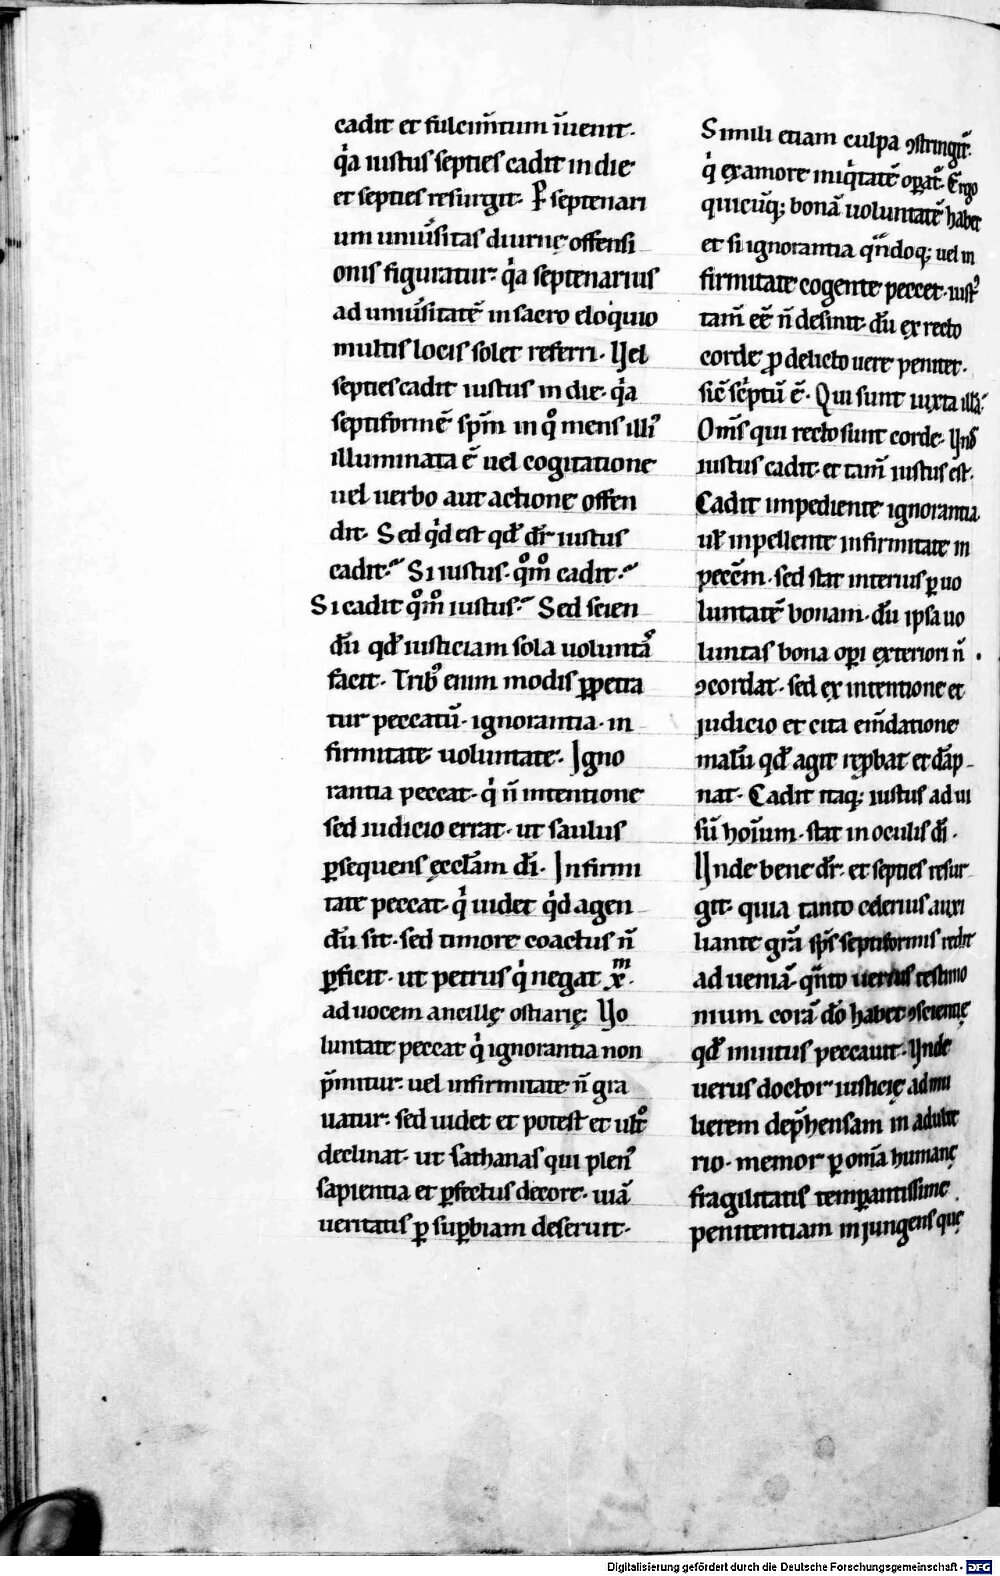 cadit et fulcim̄tum īuenit.
qͥa iustus septies cadit in die
et septies resurgit. P̲ septenari
um uniūsitas diurnę offensi
onis figuratur. qͥa septenarius
ad uniūsitatē in sacro eloquio
multis locis solet referri. Vel
septies cadit iustus in die. qͥa
septiformē sp̄m in qͦ mens illiꝰ
illuminata ē uel cogitatione
uel uerbo aut actione offen
dit. Sed qͥd est qd̄ dr̄ iustus
cadit? Si iustus. qͦm̊ cadit?
Si cadit qͦm̊ iustus? Sed scien
dū qd̄ iusticiam sola uoluntaꝰ
facit. Tribꝰ enim modis ꝑpetra
tur peccatū. ignorantia. in
firmitate. uoluntate. Igno
rantia peccat. qͥ n̄ intentione
sed iudicio errat. ut saulus
ꝑsequens ęccl̄am dī. Infirmi
tate peccat. qͥ uidet qͥd agen
dū sit. sed timore coactus n̄
ꝑficit. ut petrus qͥ negat xͫ.
ad uocem ancillę ostiarię. Vo
luntate peccat qͥ ignorantia non
p̄mitur. uel infirmitate n̄ gra
uatur. sed uidet et potest et ult̊
declinat. ut sathanas qui plenꝰ
sapientia et ꝑfectus decore. uiā
ueritatis ꝑ suꝑbiam deseruit.
Simili etiam culpa ꝯstringit̄.
qͥ ex amore iniqͥtatē oꝑat̄. Ergo
quicūq; bonā uoluntatē habet
et si ignorantia qn̄doq; uel in
firmitate cogente peccet. iustꝰ
tam̄ eē n̄ desinit. dū ex recto
corde ꝓ delicto uere penitet.
sic̄ sc̄ptū ē. Qui sunt iuxta illā?
Om̄s qui recto sunt corde. Vn̄
iustus cadit. et tam̄ iustus est.
Cadit impediente ignorantia.
ul̄ inpellente infirmitate in
peccm̄. sed stat interius ꝑ uo
luntatē bonam. dū ipsa uo
luntas bona oꝑi exteriori n̄
ꝯcordat. sed ex intentione et
judicio et cita em̄datione
malū qd̄ agit rep̱bat et dāp-
nat. Cadit itaq; iustus ad ui
sū hoīum. stat in oculis dī.
Vnde bene dr̄. et septies resur
git. quia tanto celerius auxi
liante gr̄a sp̄s septiformis redit
ad ueniā. qͣnto uerius testimo
nium corā dō habet ꝯscientię
qd̄ inuitus peccauit. Vnde
uerus doctor iusticię ad mu
lierem dep̄hensam in adulte
rio. memor ꝑ om̄a humanę
fragilitatis temꝑantissime
penitentiam injungens quę
Digitalisierung gefördert durch die Deutsche Forschungsgemeinschaft - DFG